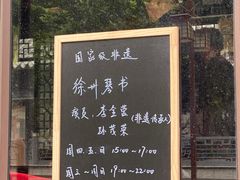 国家级非遗
徐州琴书
演员：李金萱
(非遗传承人)
孙茂荣
周四.五.日 15:00～17:00
周三～周日 19:00～22:00